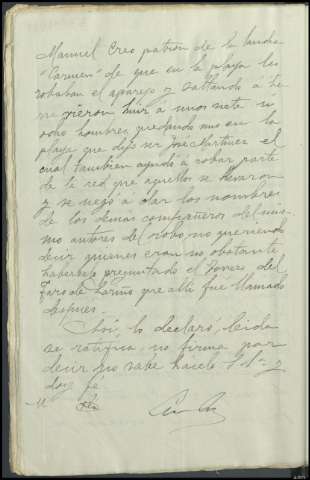 Manuel Creo patron de la lancha
"Carmen" de que en la playa les
robaban el aparejo y saltando á tie
rra vieron huir á unos siete u
ocho hombres quedando uno en la
playa que dijo ser José Martinez el
cual tambien ayudó á robar parte
de la red que aquellos se llevaron
y se negó á dar los nombres
de los demás compañeros del mis
mo autores del robo, no queriendo
decir quienes eran no obstante
haberselo preguntado el Torrero del
Faro de Lariño que allí fué llamado
despues.
Así lo declaró, leida
se ratifica, no firma por
decir no sabe hacelo S. Sª y
doy fé